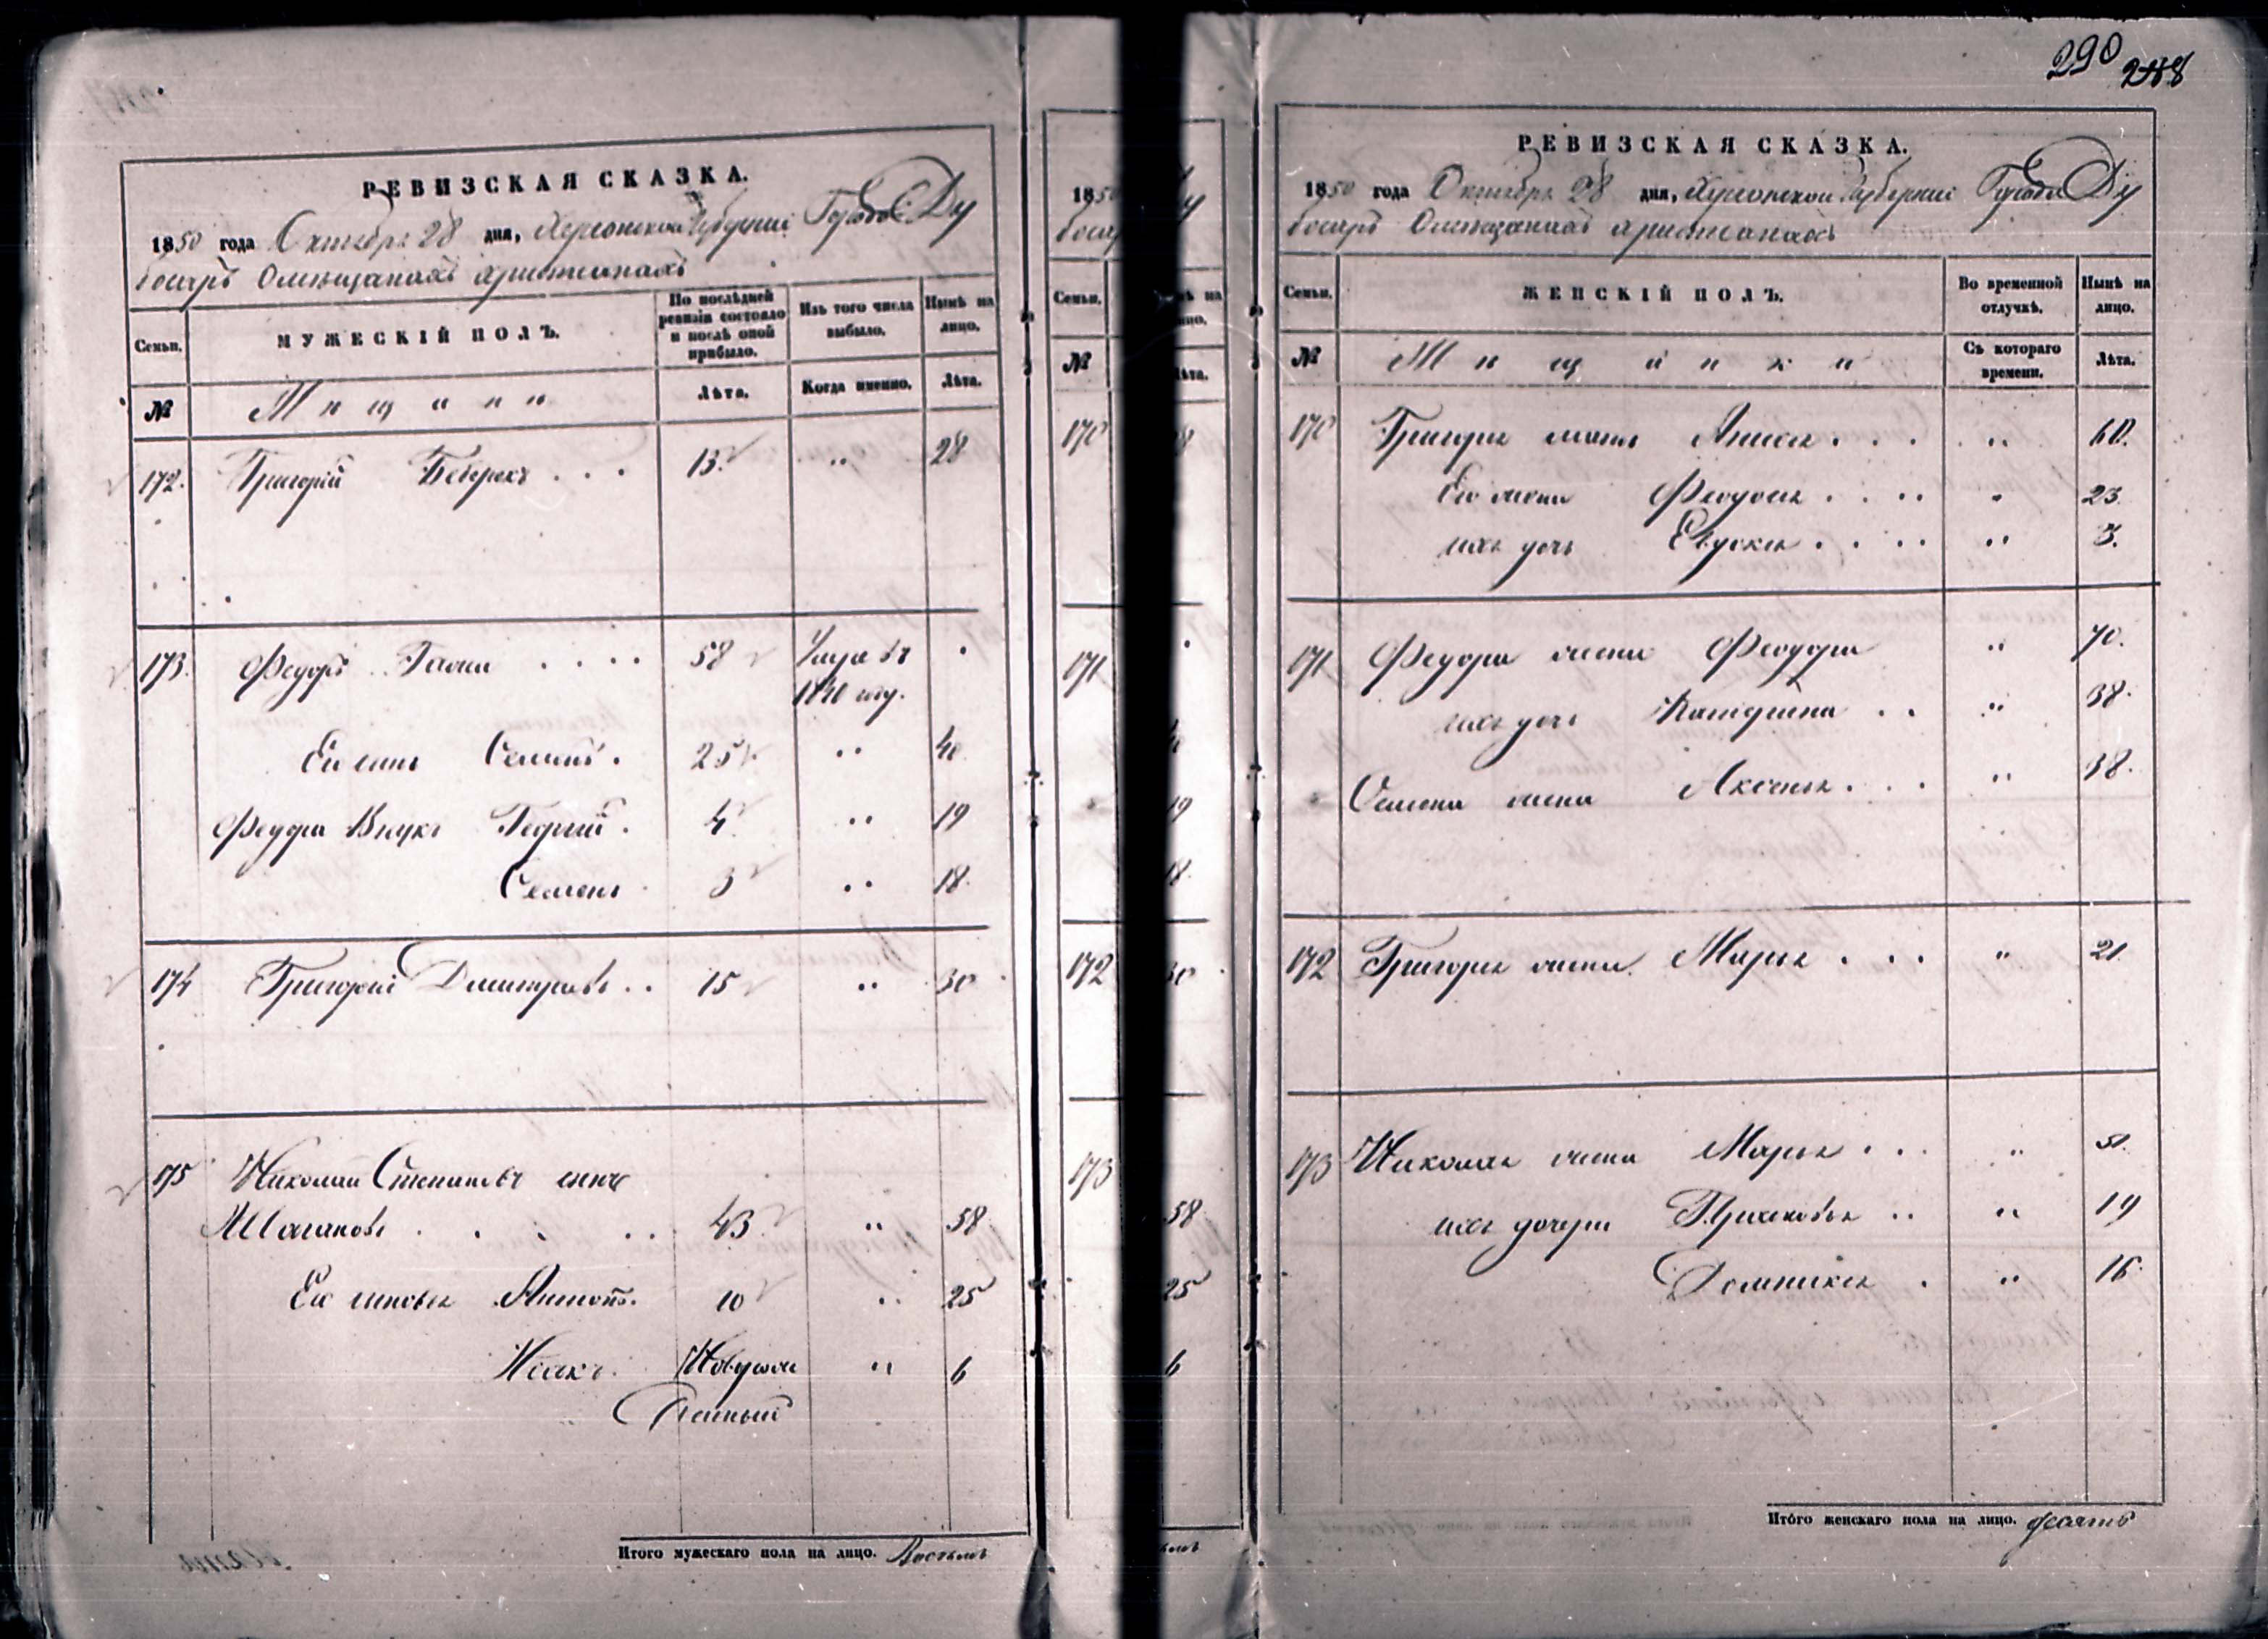 РЕВИЗСКАЯ СКАЗКА.
1850 года Октября 28 дня, Херсонской Губернии Города Ду
босаръ Омѣщанахъ христианахъ
Семьи.
МУЖЕСКІЙ ПОЛЪ.
По послѣдней ревизіи состояло и послѣ оной прибыло.
Изъ того числа выбыло.
Нынѣ на лицо.
№
Мѣщане
Лѣта.
Когда именно.
Лѣта.
172. Григорій 13. " 28
173. Федоръ 58 Умре въ
году.
Его сынъ Семенъ. 25 " 40
Федора Внукъ Георгий. 4 " 19
Семенъ 3 " 18.
174 Григорій Дмитріевъ .. 15 " 30
175 Николай Степановъ сынъ
43 " 58
Его сыновья Антонъ. 10 " 25
Исакъ Новорож " 6
денный
Итого мужескаго пола на лицо. Восемь
1850
Семьи.
№
170
171
172 30
173
58
25
6
290 288
РЕВИЗСКАЯ СКАЗКА.
1850 года Октября 28 дня, Херсонской Губернии Города Ду
босаръ Омѣщанахъ христианахъ
Семьи.
ЖЕНСКІЙ ПОЛЪ.
Во временной отлучкѣ.
Нынѣ на лицо.
№
Мѣщанки
Съ котораго времени.
Лѣта.
170 Григорья мать Анисья . . . " 60.
Его жена Феодосья . . . " 23.
ихъ дочь Евдокія . . . " 3.
171 Федора жена Феодора " 70.
ихъ дочь Катерина . . " 38.
Семена жена Аксенья . . . " 38.
172 Григорья жена Марья . . . " 21
173 Николая жена Марья . . . " 51.
ихъ дочери Прасковья .. " 19
Домникія . " 16
Итого женскаго пола на лицо. десять